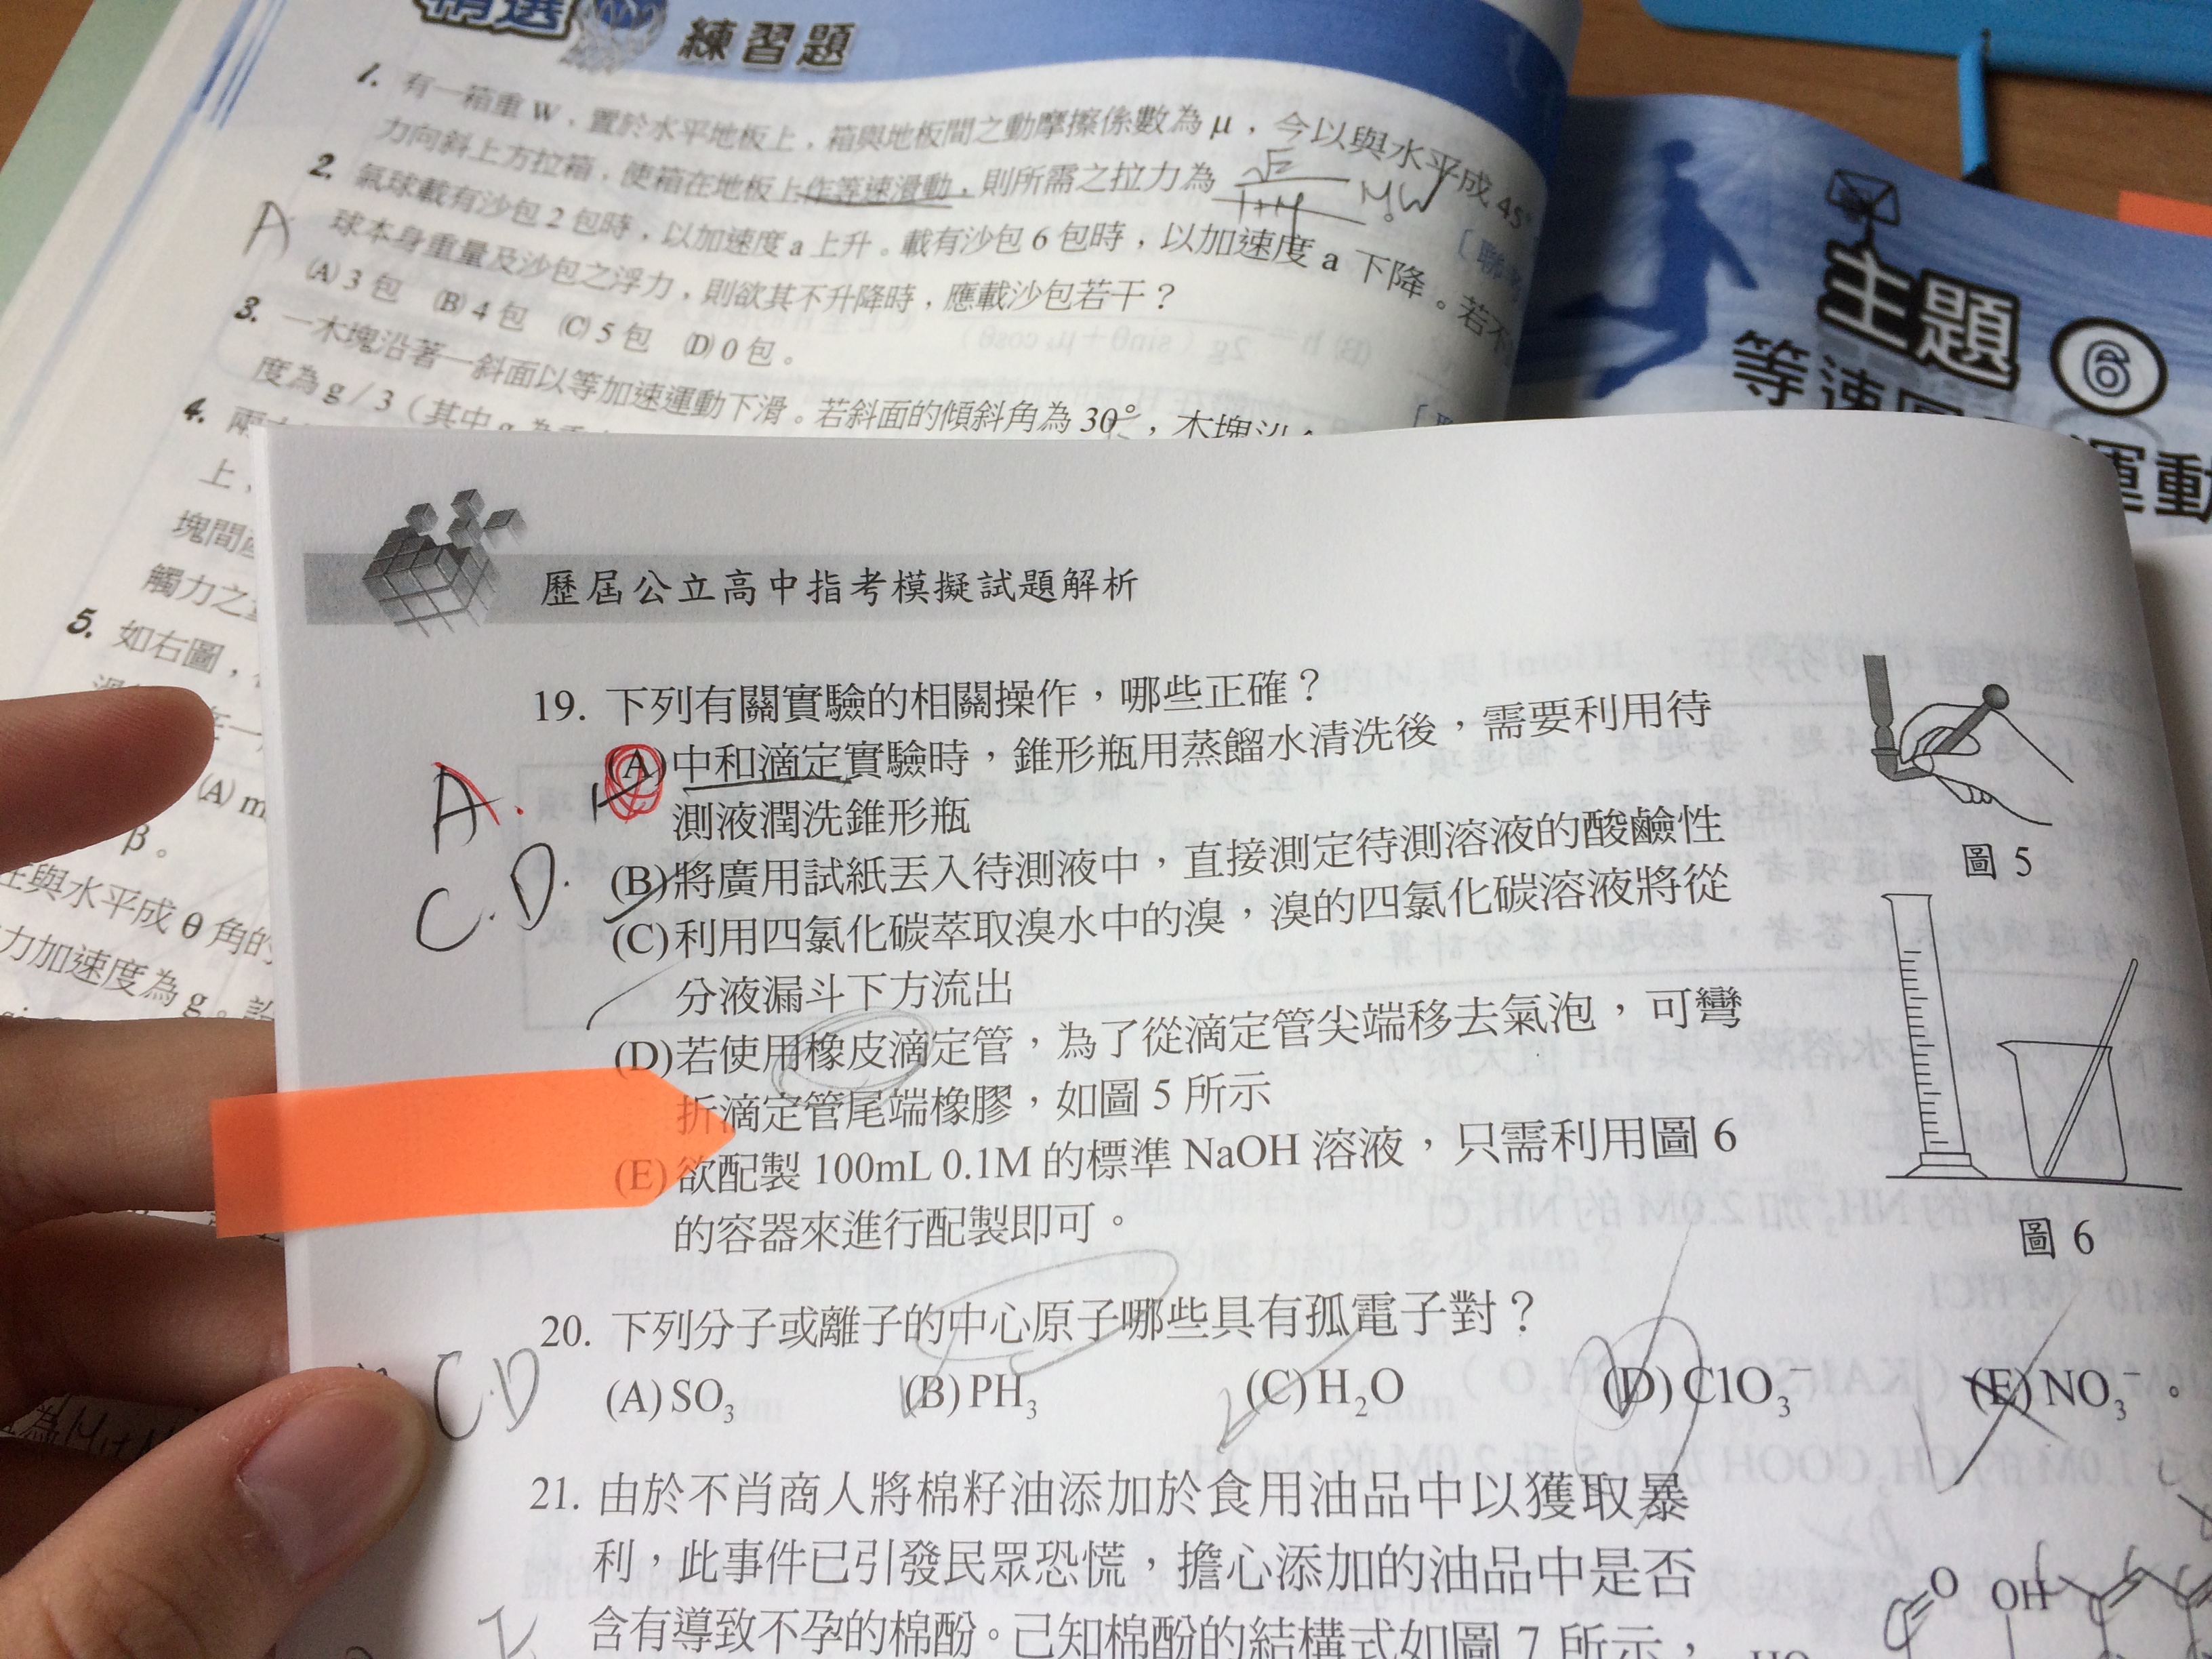 精選 練習題
1. 有一箱重 W，置於水平地板上，箱與地板間之動摩擦係數為 μ，今以與水平成 45°
力向斜上方拉箱，使箱在地板上作等速滑動，則所需之拉力為 √2/1+μ μW。
2. 氣球載有沙包 2 包時，以加速度 a 上升。載有沙包 6 包時，以加速度 a 下降。若不
A
球本身重量及沙包之浮力，則欲其不升降時，應載沙包若干？
(A) 3 包 (B) 4 包 (C) 5 包 (D) 0 包。
3. 一木塊沿著一斜面以等加速運動下滑。若斜面的傾斜角為 30°，木塊沿
度為 g / 3（其中 g
4. 兩
上，
塊間
觸力之
5. 如右圖，
(A) m
β。
與水平成 θ 角的
力加速度為 g。
主題 6
等速
運動
歷屆公立高中指考模擬試題解析
19. 下列有關實驗的相關操作，哪些正確？
A. C.D.
(A)中和滴定實驗時，錐形瓶用蒸餾水清洗後，需要利用待
測液潤洗錐形瓶
(B)將廣用試紙丟入待測液中，直接測定待測溶液的酸鹼性
(C)利用四氯化碳萃取溴水中的溴，溴的四氯化碳溶液將從
分液漏斗下方流出
(D)若使用橡皮滴定管，為了從滴定管尖端移去氣泡，可彎
折滴定管尾端橡膠，如圖 5 所示
(E)欲配製 100mL 0.1M 的標準 NaOH 溶液，只需利用圖 6
的容器來進行配製即可。
圖 5
圖 6
20. 下列分子或離子的中心原子哪些具有孤電子對？
CD
(A)SO₃ (B)PH₃ (C)H₂O (D)ClO₃⁻ (E)NO₃⁻。
21. 由於不肖商人將棉籽油添加於食用油品中以獲取暴
利，此事件已引發民眾恐慌，擔心添加的油品中是否
含有導致不孕的棉酚。己知棉酚的結構式如圖 7 所示，
O OH
HO